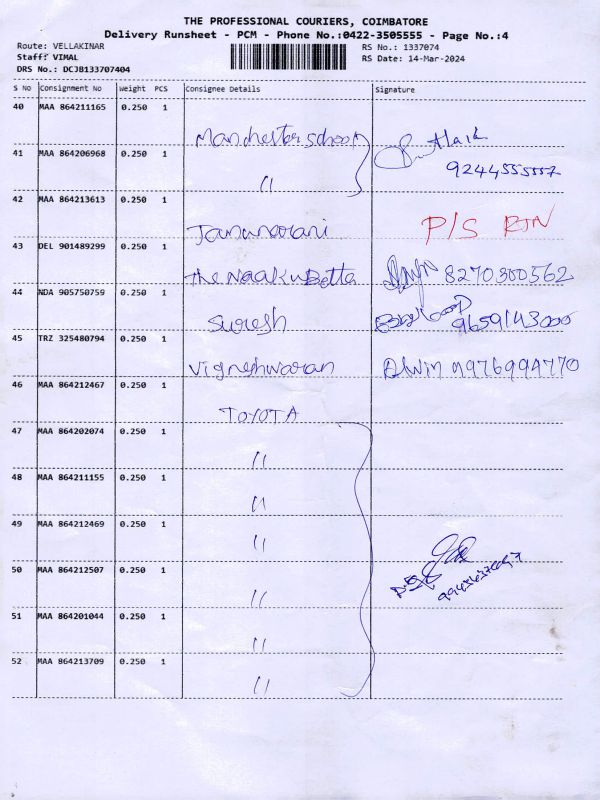 THE PROFESSIONAL COURIERS, COIMBATORE
Delivery Runsheet - PCM - Phone No.:0422-3505555 - Page No.:4
Route: VELLAKINAR
RS No.: 1337074
Staff: VIMAL
RS Date: 14-Mar-2024
DRS No.: DCJB133707404
S No Consignment No Weight PCS Consignee Details Signature
40 MAA 864211165 0.250 1
Manchester school
41 MAA 864206968 0.250 1
9244555557
〃
42 MAA 864213613 0.250 1
Jamunarani P/S RTN
43 DEL 901489299 0.250 1
The Naaku Betta 8270300562
44 NDA 905750759 0.250 1
Suresh 9659143000
45 TRZ 325480794 0.250 1
Vigneshwaran Alwin 9976994770
46 MAA 864212467 0.250 1
TOYOTA
47 MAA 864202074 0.250 1
〃
48 MAA 864211155 0.250 1
〃
49 MAA 864212469 0.250 1
〃
50 MAA 864212507 0.250 1
〃
51 MAA 864201044 0.250 1
〃
52 MAA 864213709 0.250 1
〃